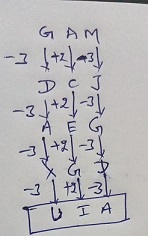 G A M
-3 +2 -3
D C J
-3 +2 -3
A E G
-3 +2 -3
X G D
-3 +2 -3
U I A